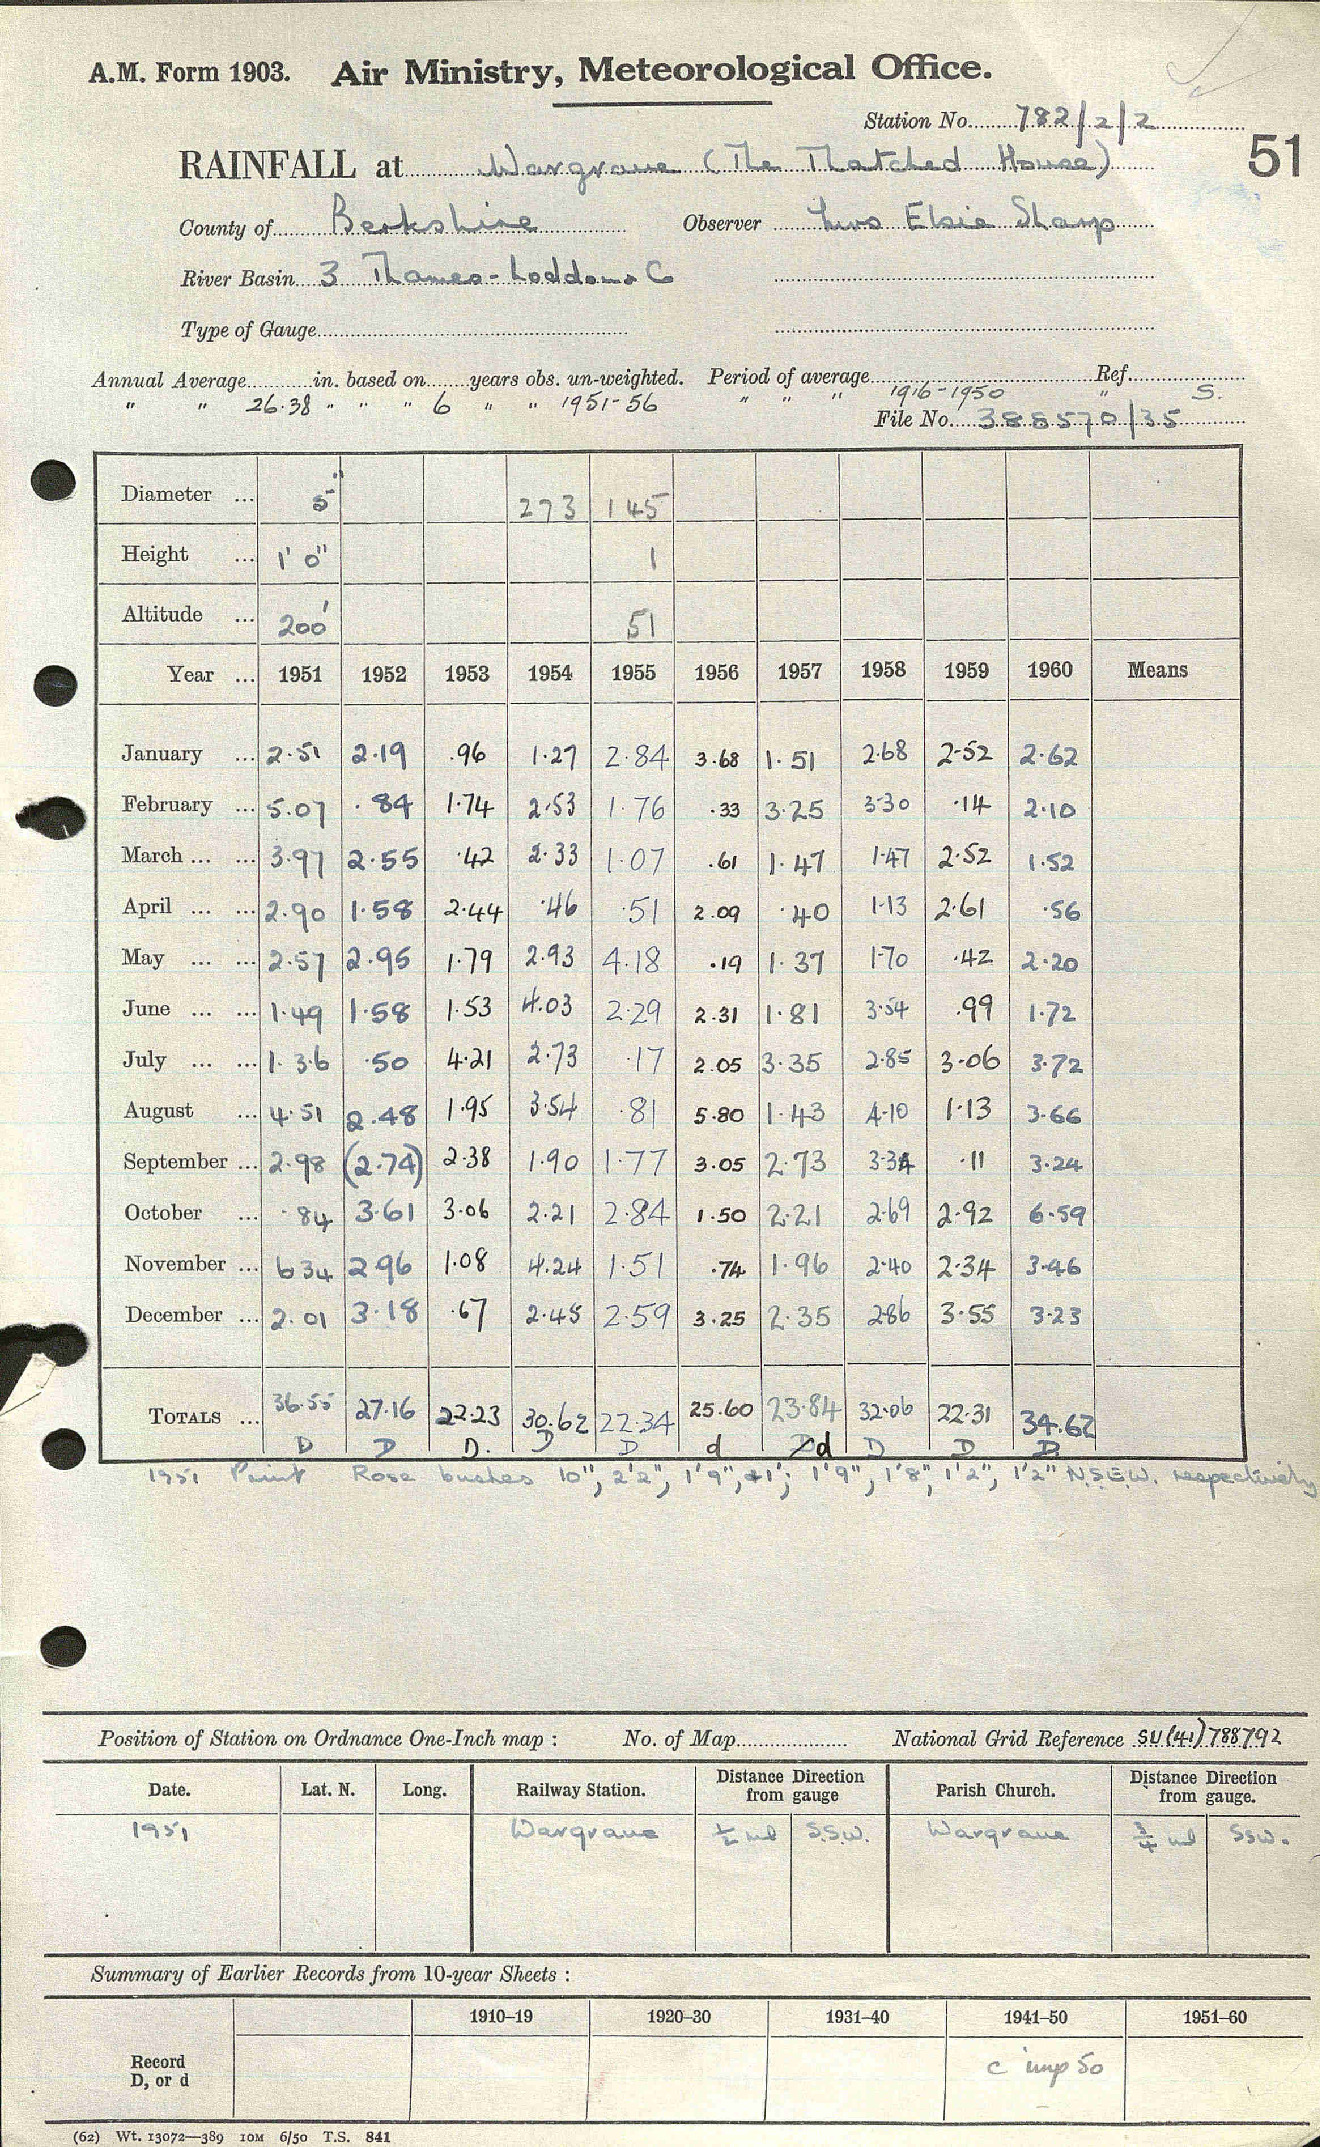 A.M. Form 1903. Air Ministry, Meteorological Office.
Station No. 782/2/2
51
RAINFALL at Wargrave (The Thatched House)
County of Berkshire Observer Elsie Sharp
River Basin 3 Thames-Loddon & C
Type of Gauge
Annual Average in. based on years obs. un-weighted. Period of average 1916-1950 Ref.
" " 26.38 " " " 6 " " 1951-56 " " " " S.
File No. 388570/35
Diameter ... 5" 273 145
Height ... 1' 0" 1
Altitude ... 200' 51
Year ... 1951 1952 1953 1954 1955 1956 1957 1958 1959 1960 Means
January ... 2.51 2.19 .96 1.27 2.84 3.68 1.51 2.68 2.52 2.62
February ... 5.07 .84 1.74 2.53 1.76 .33 3.25 3.30 .14 2.10
March ... ... 3.97 2.55 .42 2.33 1.07 .61 1.47 1.47 2.52 1.52
April ... ... 2.90 1.58 2.44 .46 .51 2.09 .40 1.13 2.61 .56
May ... ... 2.57 2.95 1.79 2.93 4.18 .19 1.37 1.70 .42 2.20
June ... ... 1.49 1.58 1.53 4.03 2.29 2.31 1.81 3.54 .99 1.72
July ... ... 1.36 .50 4.21 2.73 .17 2.05 3.35 2.85 3.06 3.72
August ... 4.51 2.48 1.95 3.54 .81 5.80 1.43 4.10 1.13 3.66
September ... 2.98 (2.74) 2.38 1.90 1.77 3.05 2.73 3.34 .11 3.24
October ... .84 3.61 3.06 2.21 2.84 1.50 2.21 2.69 2.92 6.59
November ... 6 34 2 96 1.08 4.24 1.51 .74 1.96 2.40 2.34 3.46
December ... 2.01 3.18 .67 2.45 2.59 3.25 2.35 2.86 3.55 3.23
TOTALS ... 36.55 27.16 22.23 30.62 22.34 25.60 23.84 32.06 22.31 34.62
D D D. D D d d D D D
1951 Rose bushes 10", 2'2", 1'9", 1'; 1'9", 1'8", 1'2", 1'2" N.S.E.W. respectively
Position of Station on Ordnance One-Inch map : No. of Map National Grid Reference SU(41)788792
Date. Lat. N. Long. Railway Station. Distance Direction from gauge Parish Church. Distance Direction from gauge.
1951 Wargrave ½ ml S.S.W. Wargrave ¾ ml SSW.
Summary of Earlier Records from 10-year Sheets :
1910–19 1920–30 1931–40 1941–50 1951–60
Record
D, or d
c imp 50
(62) Wt. 13072—389 10M 6/50 T.S. 841